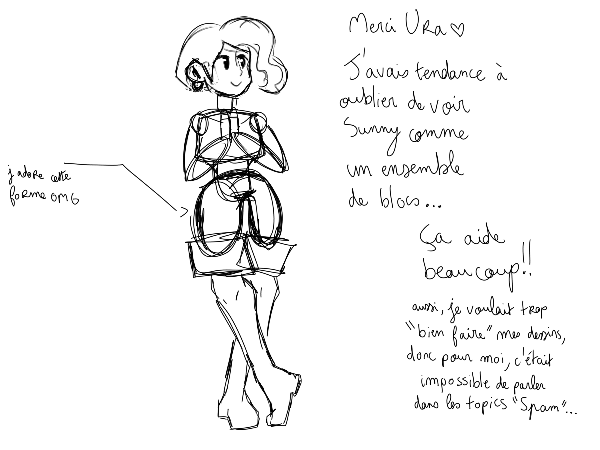 Merci Ura ♡
J'avais tendance à
oublier de voir
Sunny comme
un ensemble
de blocs...
j'adore cette
forme OMG
Ça aide
beaucoup!!
aussi, je voulait trop
"bien faire" mes dessins,
donc pour moi, c'était
impossible de parler
dans les topics "Spam"...